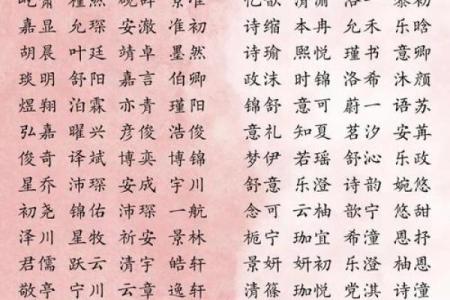 嘉显 允琛 安澈 景初 诗缙 本冉 沐熙 乐晗
胡晨 叶廷 靖卓 墨然 诗瑜 熙悦 瑾书 意卿
琰明 舒阳 嘉言 伯卿 政沫 时锦 洛希 沐颜
煜翔 泊霖 亦青 瑾阳 锦舒 意可 蔚一 语苏
弘嘉 曜兴 彦俊 浩俊 意礼 知夏 茗汐 安苒
俊奇 译斌 博奕 博锦 梦伊 若瑶 舒沁 乐政
星乔 沛琛 安成 宇川 舒意 乐澄 诗韵 婉悠
初尧 锦佑 沛琛 一航 念可 云柚 歆宁 悠甜
泽川 星牧 祈安 景林 栀宁 珈宜 希潼 恩抒
君儒 跃云 清宇 皓轩 景妍 妍初 乐澄 思潼
敬亭 安宁 云章 逸轩 清篠 珈悦 党淇 诗潼